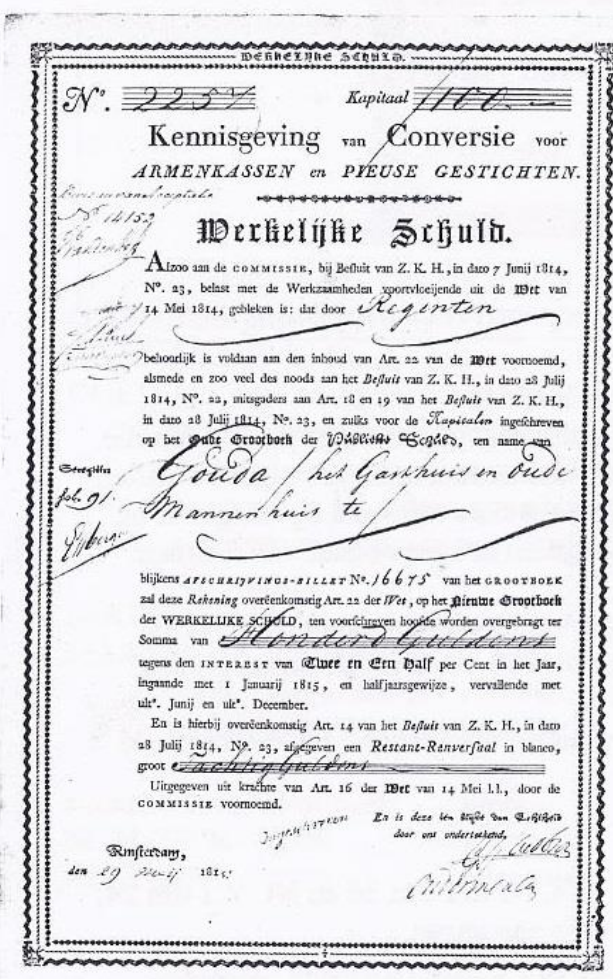 WERKELIJKE SCHULD.
No. 2257 Kapitaal f 100.—
Kennisgeving van Conversie voor
ARMENKASSEN en PIEUSE GESTICHTEN.
No 14152
Werkelijke Schuld.
Alzoo aan de COMMISSIE, bij Besluit van Z. K. H., in dato 7 Junij 1814,
No. 23, belast met de Werkzaamheden voortvloeijende uit de Wet van
14 Mei 1814, gebleken is: dat door Regenten
behoorlijk is voldaan aan den inhoud van Art. 22 van de Wet voornoemd,
alsmede en zoo veel des noods aan het Besluit van Z. K. H., in dato 28 Julij
1814, No. 22, mitsgaders aan Art. 18 en 19 van het Besluit van Z. K. H.,
in dato 28 Julij 1814, No. 23, en zulks voor de Kapitalen ingeschreven
op het Oude Grootboek der Publieke Schuld, ten name van
Gouda / het Gasthuis en oude
fol. 91.
Mannenhuis te /
blijkens AFSCHRIJVINGS-BILLET No. 16675 van het GROOTBOEK
zal deze Rekening overëenkomstig Art. 22 der Wet, op het Nieuwe Grootboek
der WERKELIJKE SCHULD, ten voorschreven hoofde worden overgebragt ter
Somma van Honderd Guldens
tegens den INTEREST van Twee en Een Half per Cent in het Jaar,
ingaande met 1 Januarij 1815, en halfjaarsgewijze, vervallende met
ulto. Junij en ulto. December.
En is hierbij overëenkomstig Art. 14 van het Besluit van Z. K. H., in dato
28 Julij 1814, No. 23, afgegeven een Restant-Renversaal in blanco,
groot Tachtig Guldens
Uitgegeven uit krachte van Art. 16 der Wet van 14 Mei l.l., door de
COMMISSIE voornoemd.
Ingeschreven
En is deze ten blijke van Echtheid
door ons onderteekend,
Amsterdam,
den 29 1815